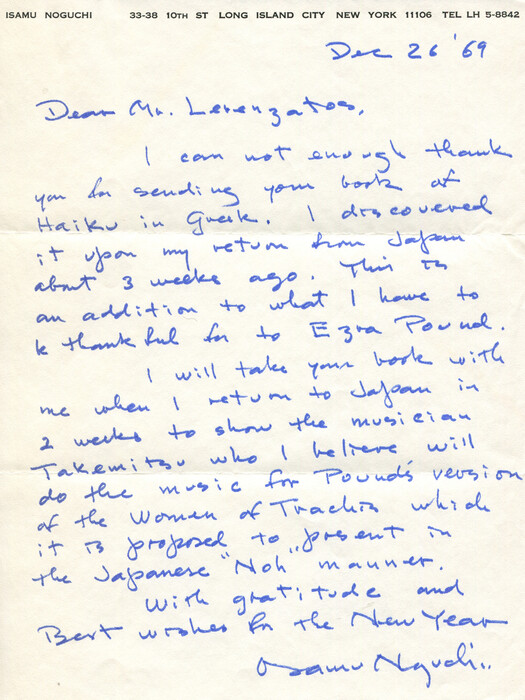 ISAMU NOGUCHI 33-38 10TH ST LONG ISLAND CITY NEW YORK 11106 TEL LH 5-8842
Dec 26 '69
Dear Mr. Lorenzatos,
I can not enough thank
you for sending your book of
Haiku in Greek. I discovered
it upon my return from Japan
about 3 weeks ago. This is
an addition to what I have to
be thankful for to Ezra Pound.
I will take your book with
me when I return to Japan in
2 weeks to show the musician
Takemitsu who I believe will
do the music for Pound's version
of the Women of Trachis which
it is proposed to present in
the Japanese "Noh" manner.
With gratitude and
Best wishes for the New Year
Isamu Noguchi